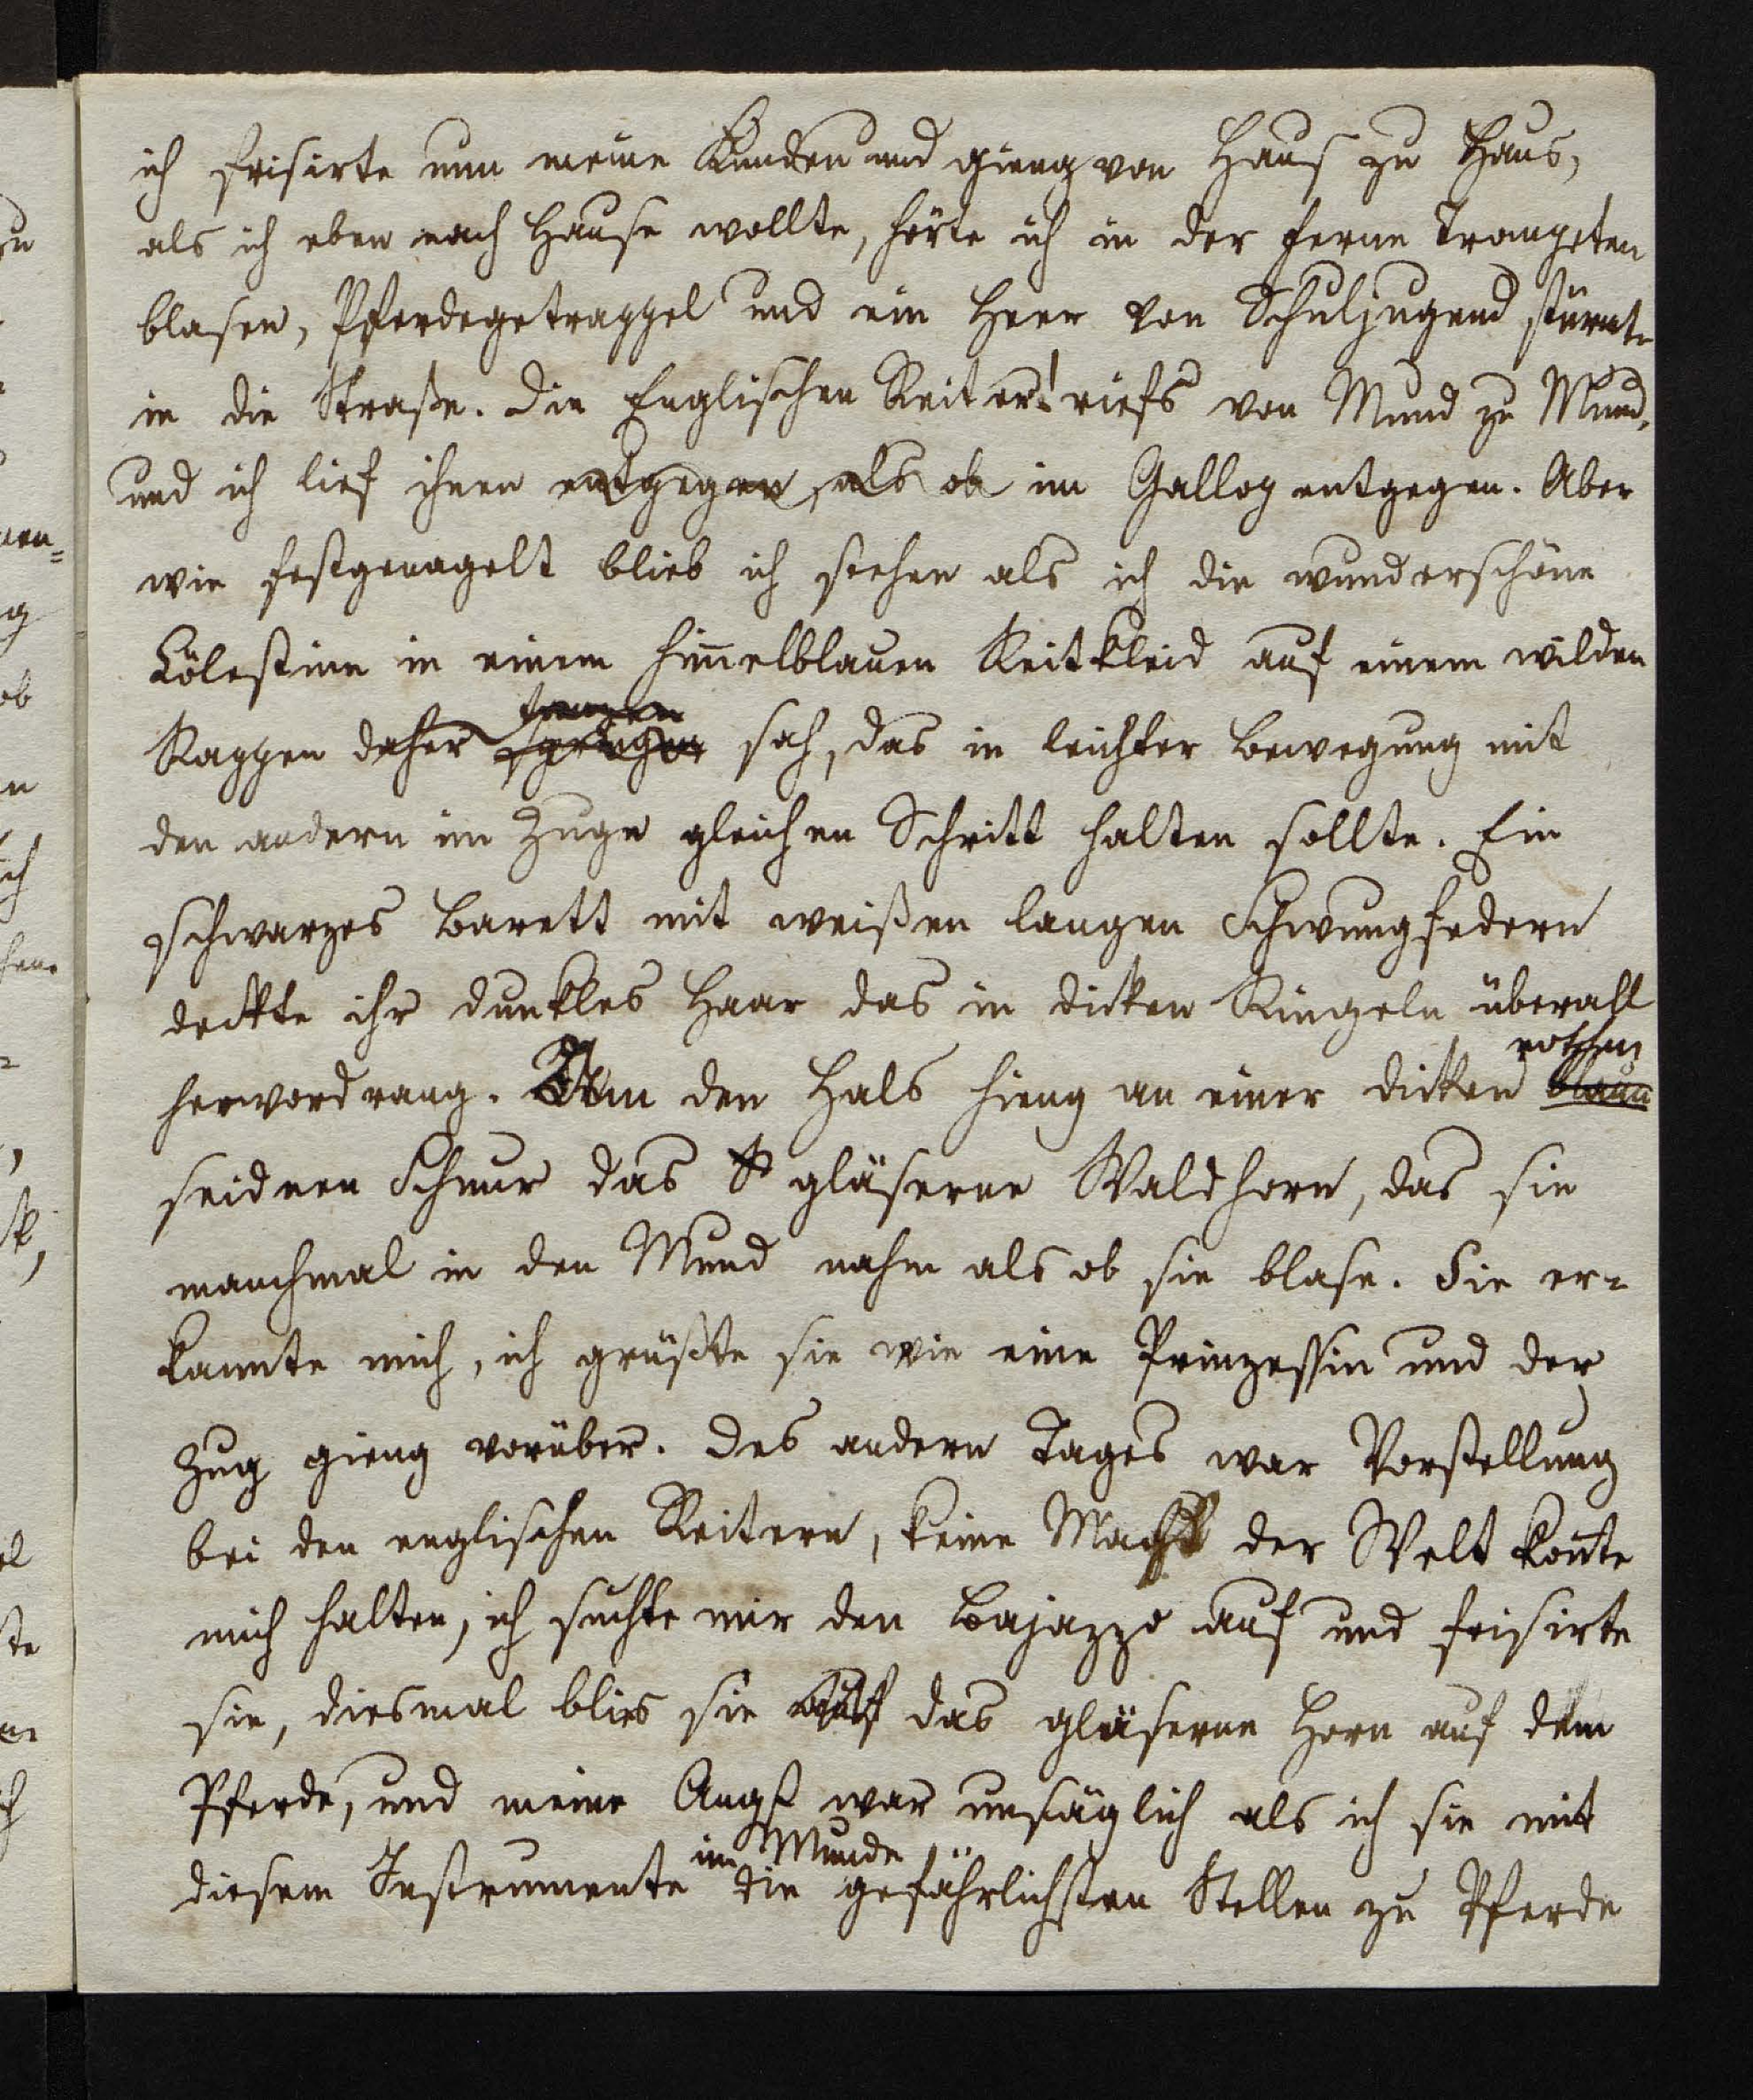 ich frisirte nun meine Kunden und gieng von Haus zu Haus,
als ich eben nach Hause wollte, hörte ich in der Ferne Trompeten
blasen, Pferdegetrappel und ein Heer von Schuljugend stürmte
in die Straße. Die Englischen Reiter! riefs von Mund zu Mund,
und ich lief ihnen entgegen, als ob im Gallop entgegen. Aber
wie festgenagelt blieb ich stehen als ich die wunderschöne
Cölestine in einem him̄elblauen Reitkleid auf einem wilden
tanzen
Rappen daher springen sah, das in leichter Bewegung mit
den andern im Zuge gleichen Schritt halten sollte. Ein
schwarzes Barett mit weißen langen Schwungfedern
deckte ihr dunkles Haar das in dicken Ringeln überall
rothen
hervordrang. Um den Hals hieng an einer dicken blauen
seidnen Schnur das gläserne Waldhorn, das sie
manchmal in den Mund nahm als ob sie blase. Sie er-
kannte mich, ich grüßte sie wie eine Prinzessin und der
Zug gieng vorüber. Des andern Tages war Vorstellung
bei den englischen Reitern, keine Macht der Welt kon̄te
mich halten, ich suchte mir den Bajazzo auf und frisirte
sie, diesmal blies sie auf das gläserne Horn auf dem
Pferde, und meine Angst war unsäglich als ich sie mit
im Munde
diesem Instrumente die gefährlichsten Stellen zu Pferde